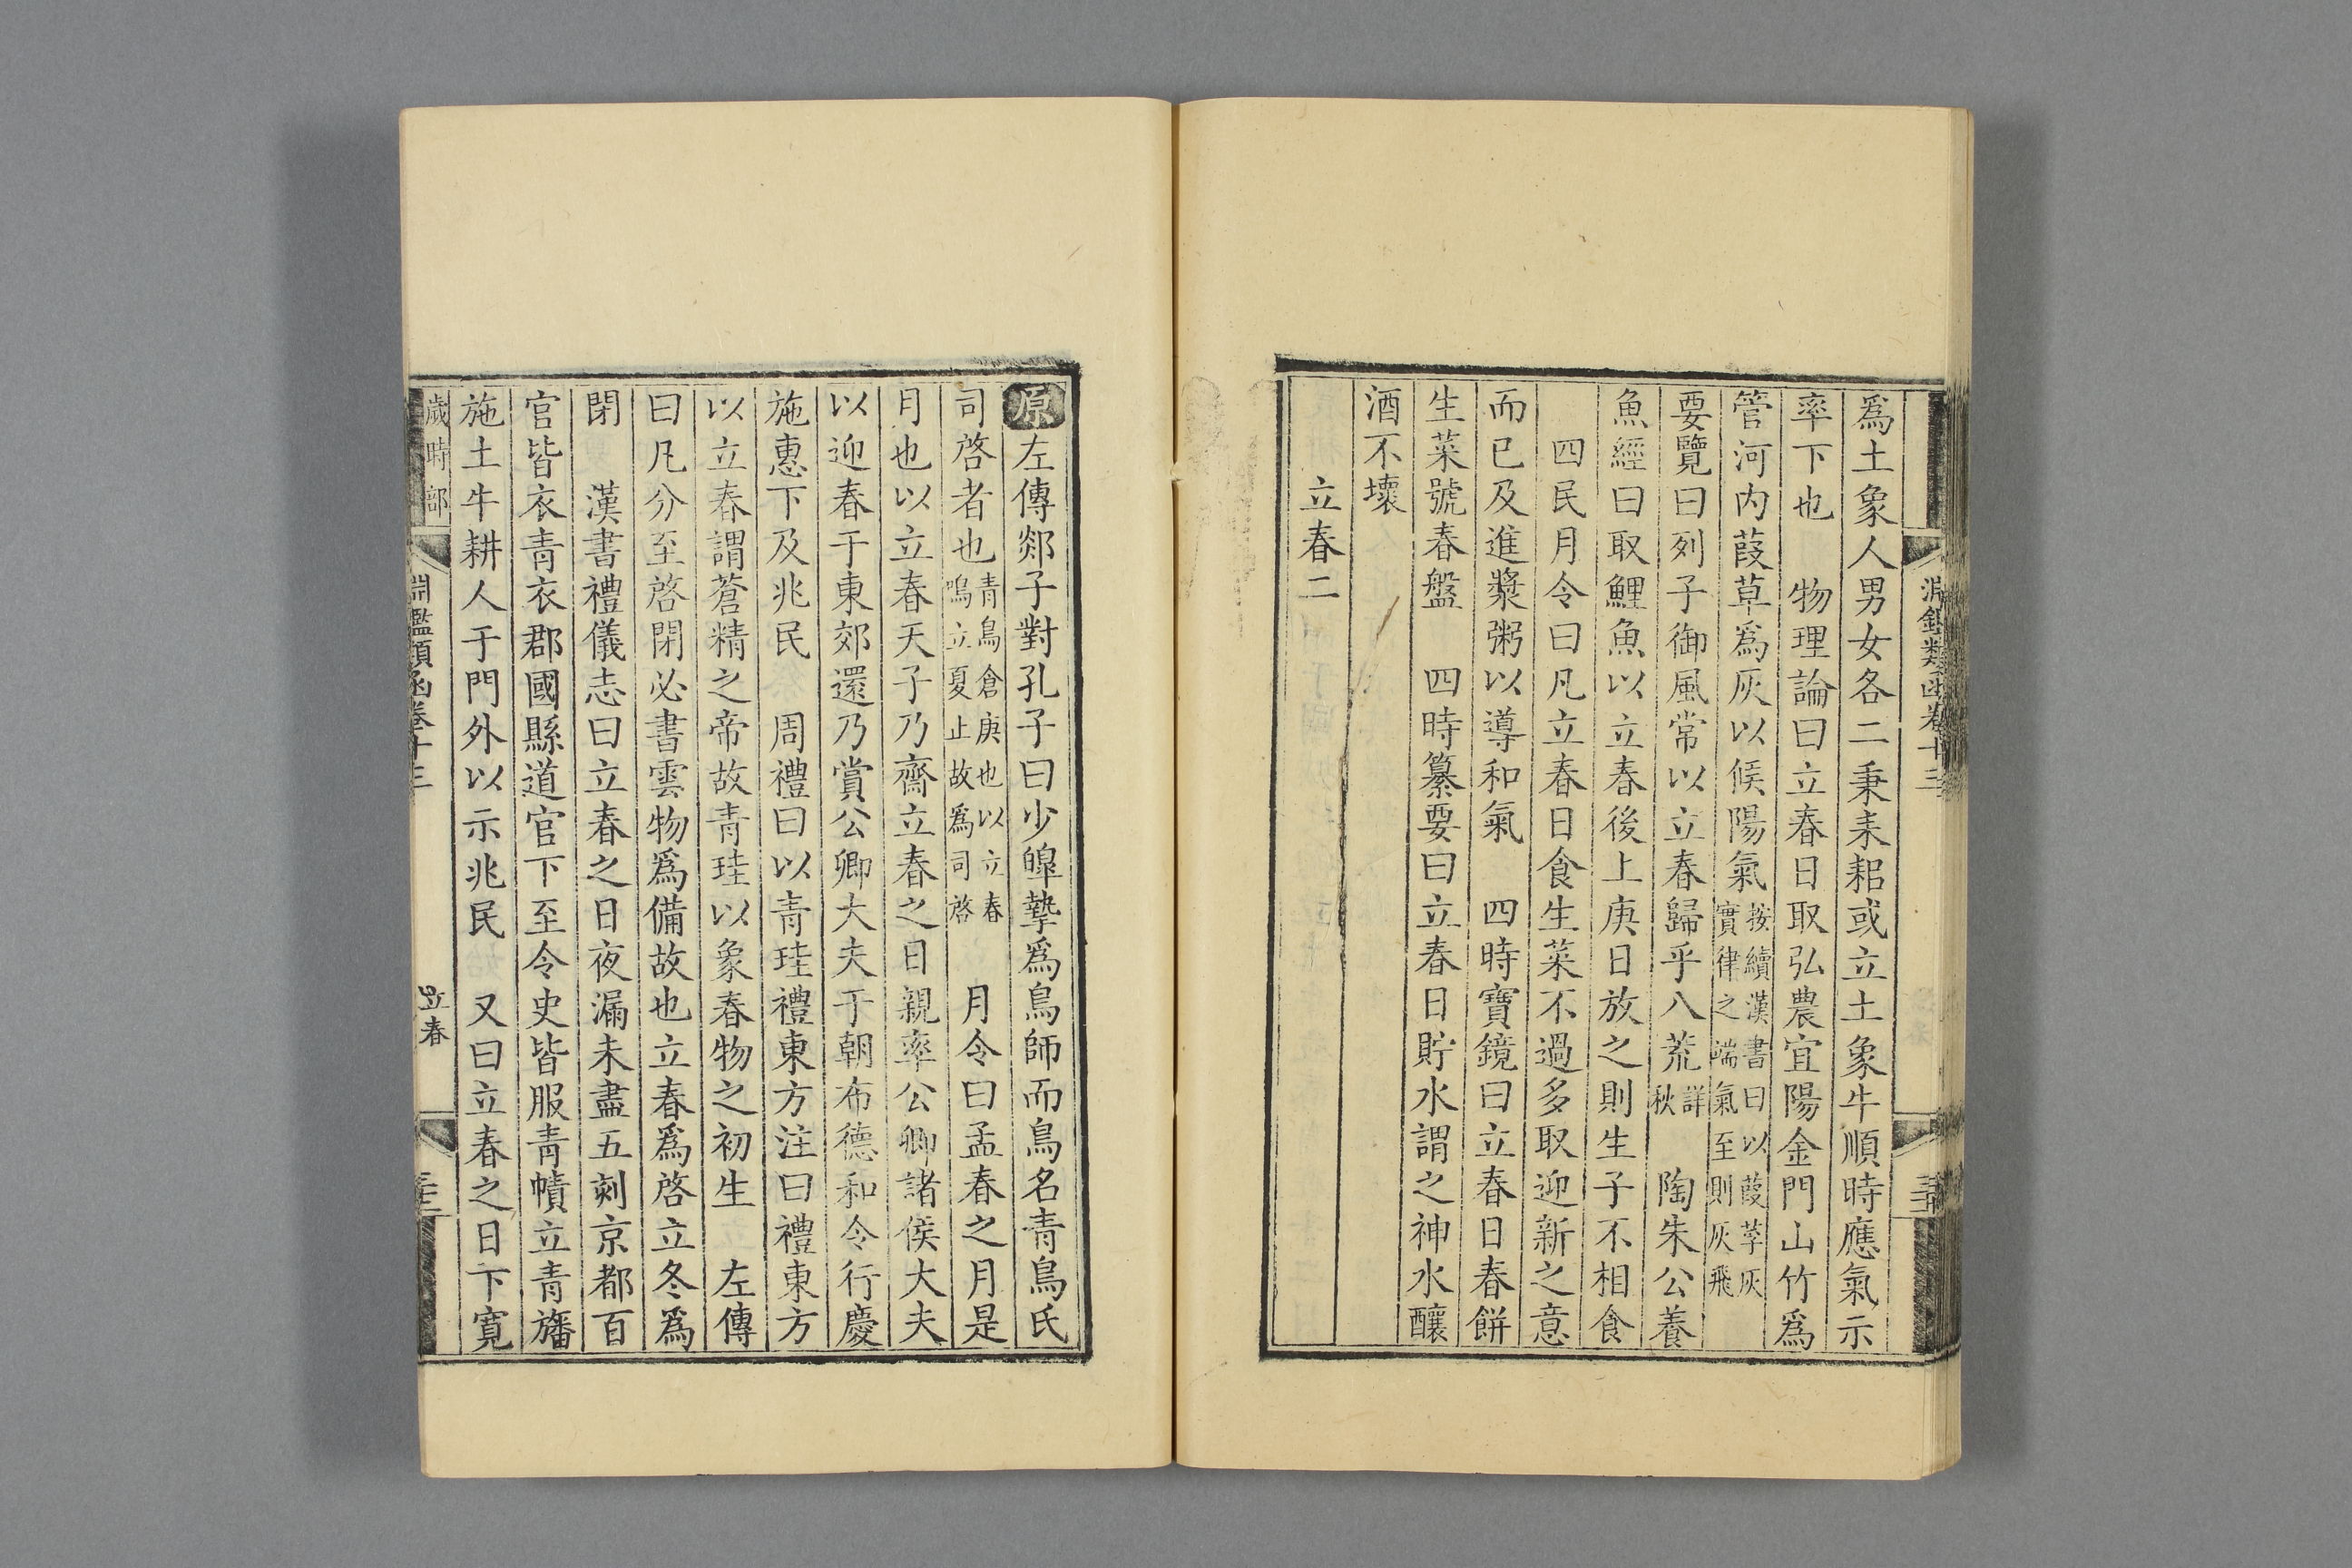 爲土象人男女各二秉耒耜或立土象牛順時應氣示
率下也　物理論曰立春日取弘農宜陽金門山竹爲
管河内葭草爲灰以候陽氣按續漢書曰以葭莩灰實律之端氣至則灰飛
要覽曰列子御風常以立春歸乎八荒詳秋　陶朱公養
魚經曰取鯉魚以立春後上庚日放之則生子不相食
四民月令曰凡立春日食生菜不過多取迎新之意
而已及進漿粥以導和氣　四時寶鏡曰立春日春餅
生菜號春盤　四時纂要曰立春日貯水謂之神水釀
酒不壞
立春二
原左傳郯子對孔子曰少皞摯爲鳥師而鳥名青鳥氏
司啓者也青鳥倉庚也以立春鳴立夏止故爲司啓　月令曰孟春之月是
月也以立春天子乃齋立春之日親率公卿諸侯大夫
以迎春于東郊還乃賞公卿大夫于朝布德和令行慶
施惠下及兆民　周禮曰以青珪禮東方注曰禮東方
以立春謂蒼精之帝故青珪以象春物之初生　左傳
曰凡分至啓閉必書雲物爲備故也立春爲啓立冬爲
閉　漢書禮儀志曰立春之日夜漏未盡五刻京都百
官皆衣青衣郡國縣道官下至令史皆服青幘立青旛
施土牛耕人于門外以示兆民　又曰立春之日下寬
歲時部
淵鑑類函卷十三
立春